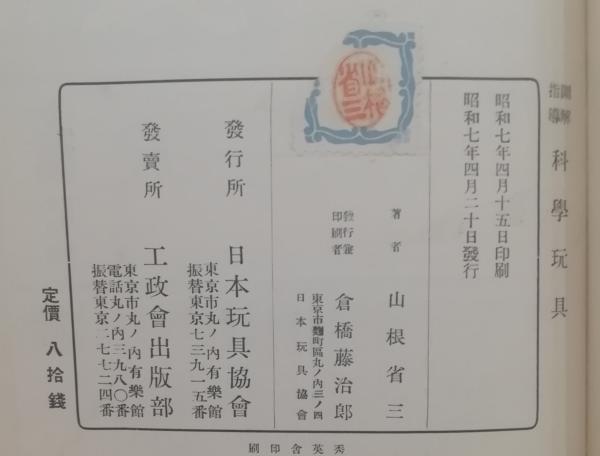 圖解
指導
科學玩具
昭和七年四月十五日印刷
昭和七年四月二十日發行
山根省三
著者
山根省三
發行兼
印刷者
倉橋藤治郎
東京市麴町區丸ノ內三ノ四
日本玩具協會
發行所
日本玩具協會
東京市丸ノ內有樂館
振替東京七三九一五番
發賣所
工政會出版部
東京市丸ノ內有樂館
電話丸ノ內三九八〇番
振替東京二七七二四番
定價 八拾錢
秀英舍印刷